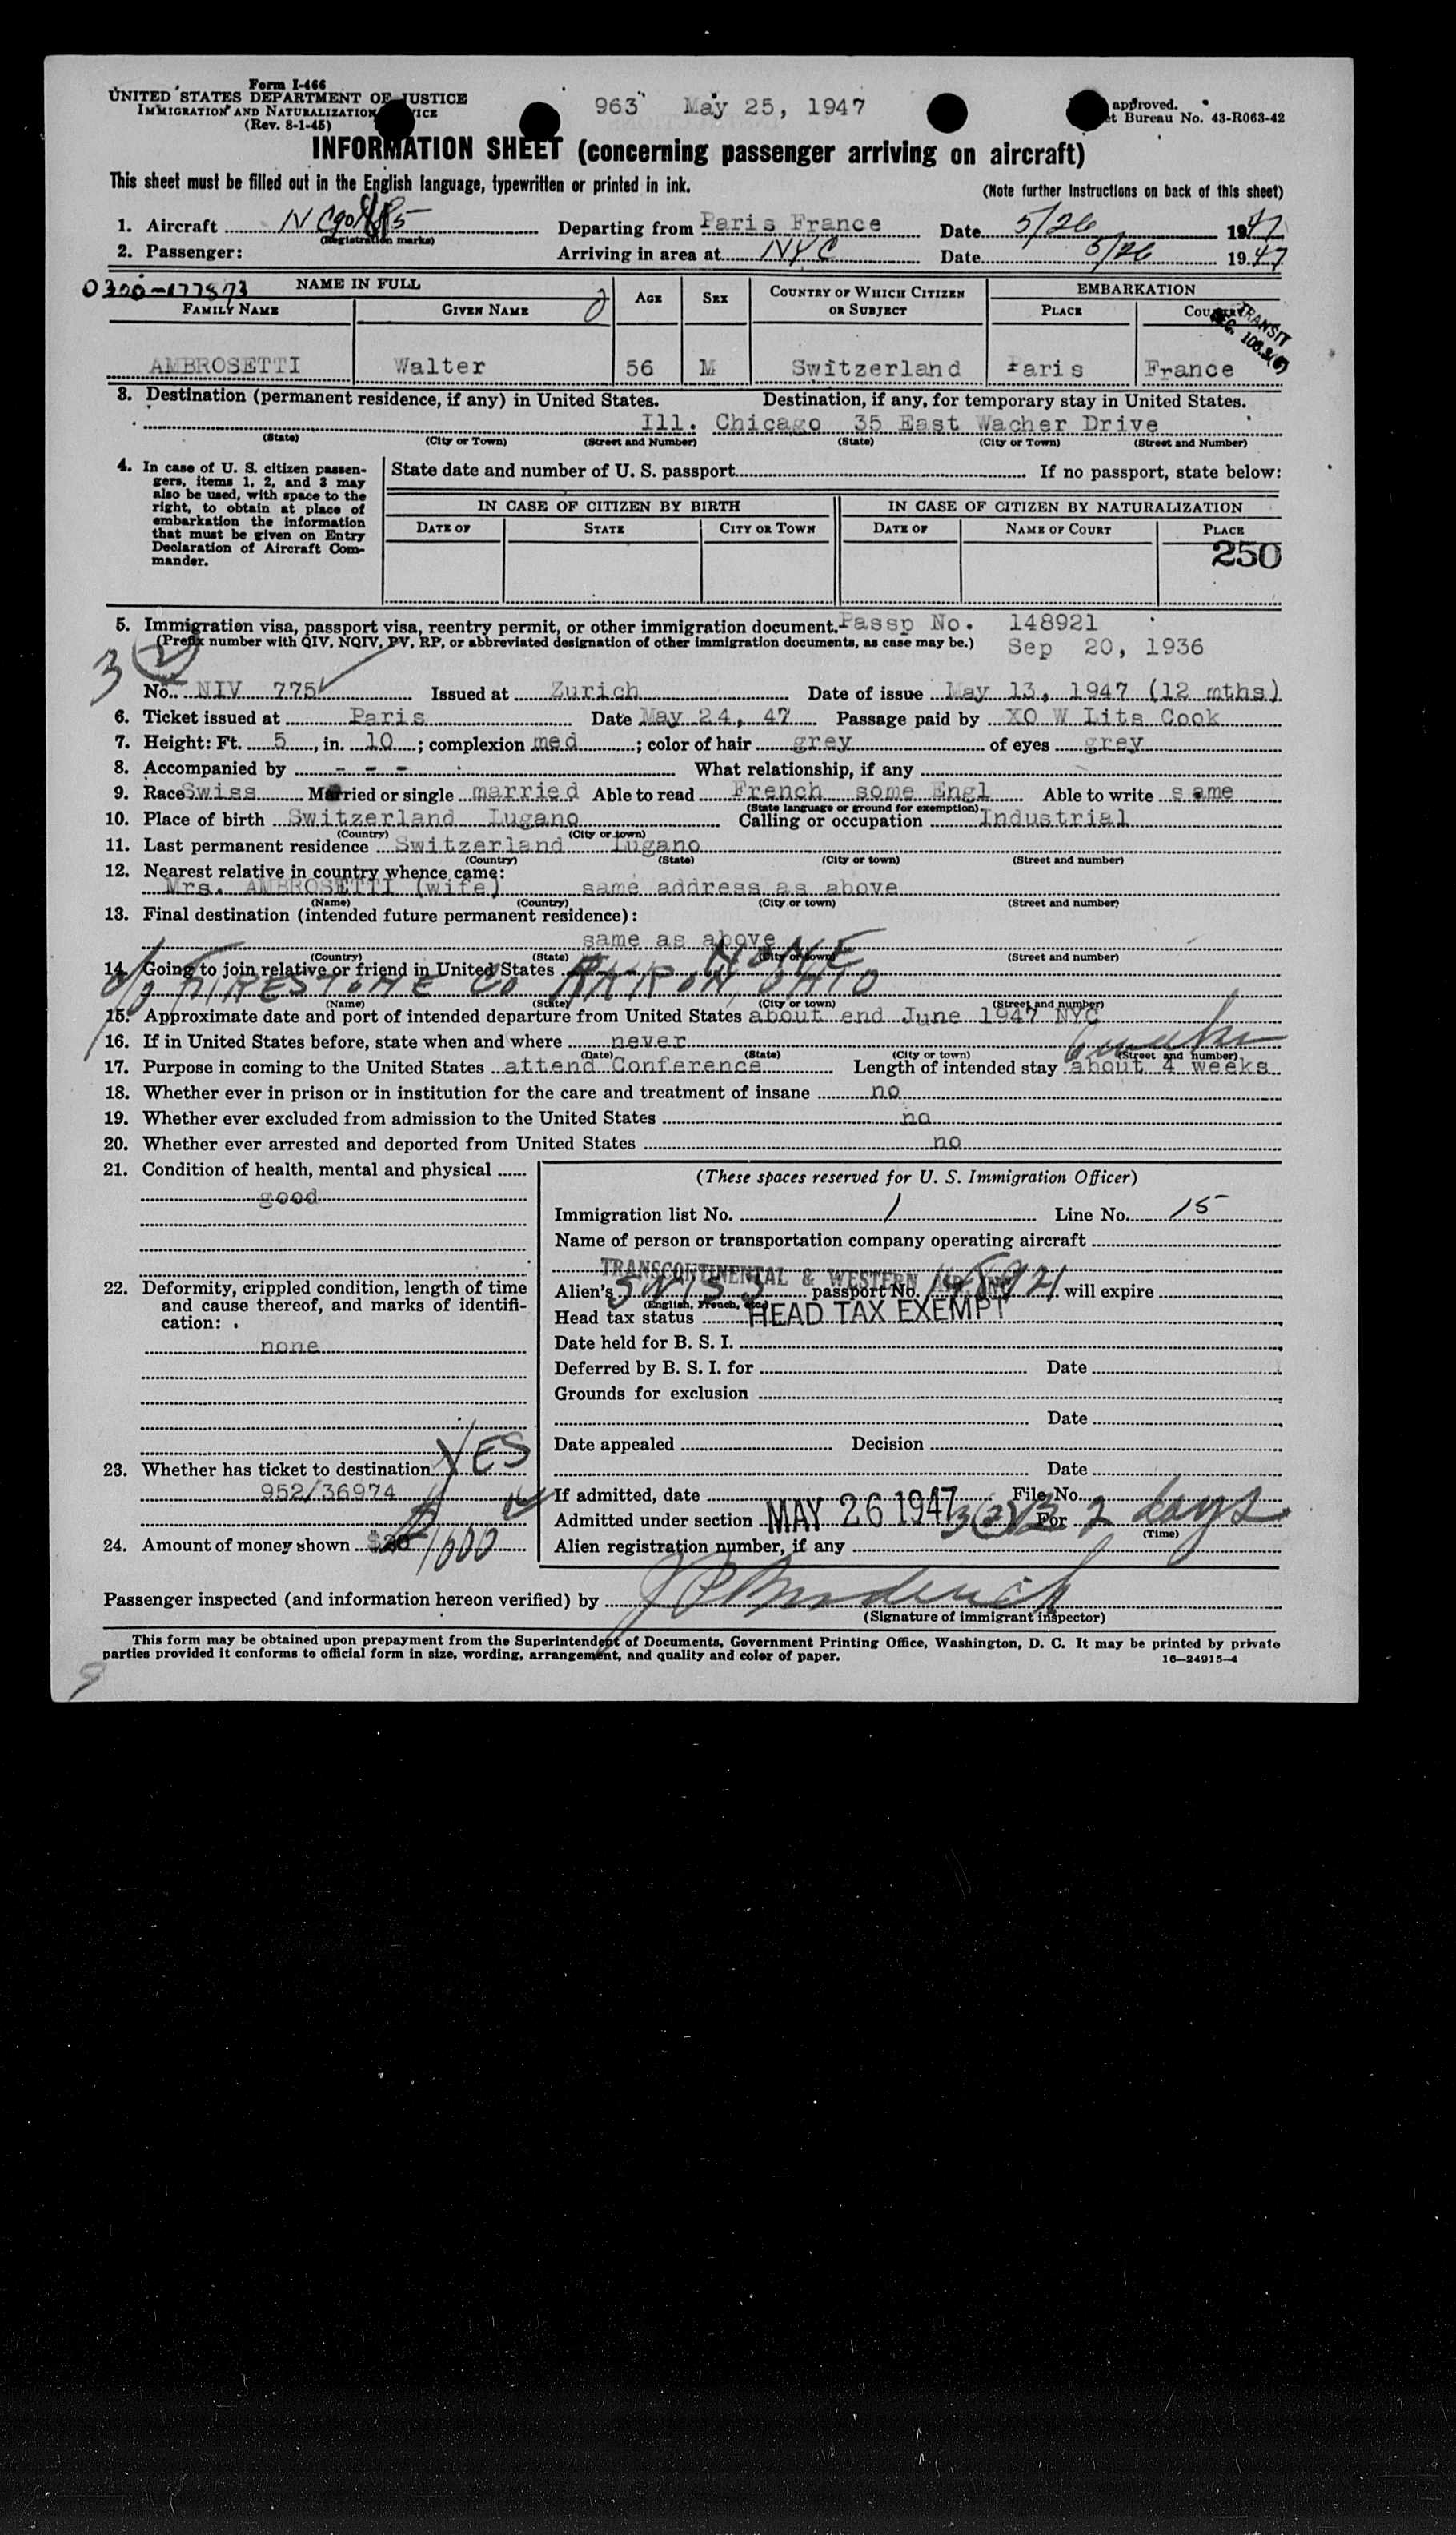 Form I-466
UNITED STATES DEPARTMENT OF JUSTICE
IMMIGRATION AND NATURALIZATION
(Rev. 8-1-45)
963 May 25, 1947
approved.
Bureau No. 43-R063-42
INFORMATION SHEET (concerning passenger arriving on aircraft)
This sheet must be filled out in the English language, typewritten or printed in ink.
(Note further instructions on back of this sheet)
1. Aircraft Departing from Paris France Date 5/26 1947
(Registration marks)
2. Passenger: Arriving in area at NYC Date 5/26 1947
0300-177873
NAME IN FULL AGE SEX COUNTRY OF WHICH CITIZEN OR SUBJECT EMBARKATION
FAMILY NAME GIVEN NAME PLACE COUNTRY
TRANSIT
AMBROSETTI Walter 56 M Switzerland Paris France
3. Destination (permanent residence, if any) in United States. Destination, if any, for temporary stay in United States.
Ill. Chicago 35 East Wacher Drive
(State) (City or Town) (Street and Number) (State) (City or Town) (Street and Number)
4. In case of U. S. citizen passengers, items 1, 2, and 3 may also be used, with space to the right, to obtain at place of embarkation the information that must be given on Entry Declaration of Aircraft Commander.
State date and number of U. S. passport If no passport, state below:
IN CASE OF CITIZEN BY BIRTH IN CASE OF CITIZEN BY NATURALIZATION
DATE OF STATE CITY OR TOWN DATE OF NAME OF COURT PLACE
250
5. Immigration visa, passport visa, reentry permit, or other immigration document. Passp No. 148921
(Prefix number with QIV, NQIV, PV, RP, or abbreviated designation of other immigration documents, as case may be.) Sep 20, 1936
3 (2)
No. NIV 775 Issued at Zurich Date of issue May 13, 1947 (12 mths)
6. Ticket issued at Paris Date May 24, 47 Passage paid by XO W Lits Cook
7. Height: Ft. 5, in. 10; complexion med; color of hair grey of eyes grey
8. Accompanied by - - - What relationship, if any
9. Race Swiss Married or single married Able to read French some Engl Able to write same
(State language or ground for exemption)
10. Place of birth Switzerland Lugano Calling or occupation Industrial
(Country) (City or town)
11. Last permanent residence Switzerland Lugano
(Country) (State) (City or town) (Street and number)
12. Nearest relative in country whence came:
Mrs. AMBROSETTI (wife) same address as above
(Name) (Country) (City or town) (Street and number)
13. Final destination (intended future permanent residence):
same as above
(Country) (State) (City or town) (Street and number)
14. Going to join relative or friend in United States NONE
c/o FIRESTONE CO AKRON, OHIO
(Name) (State) (City or town) (Street and number)
15. Approximate date and port of intended departure from United States about end June 1947 NYC
16. If in United States before, state when and where never
(Date) (State) (City or town) (Street and number)
6 weeks
17. Purpose in coming to the United States attend Conference Length of intended stay about 4 weeks
18. Whether ever in prison or in institution for the care and treatment of insane no
19. Whether ever excluded from admission to the United States no
20. Whether ever arrested and deported from United States no
21. Condition of health, mental and physical
good
22. Deformity, crippled condition, length of time and cause thereof, and marks of identification:
none
23. Whether has ticket to destination YES
952/36974
24. Amount of money shown $20 1000
(These spaces reserved for U. S. Immigration Officer)
Immigration list No. 1 Line No. 15
Name of person or transportation company operating aircraft
TRANSCONTINENTAL & WESTERN AIR, INC.
Alien's SWISS passport No. 148921 will expire
(English, French, etc.)
Head tax status HEAD TAX EXEMPT
Date held for B. S. I.
Deferred by B. S. I. for Date
Grounds for exclusion
Date
Date appealed Decision
Date
If admitted, date MAY 26 1947 File No.
Admitted under section 3(2) For 2 days
(Time)
Alien registration number, if any
Passenger inspected (and information hereon verified) by
(Signature of immigrant inspector)
This form may be obtained upon prepayment from the Superintendent of Documents, Government Printing Office, Washington, D. C. It may be printed by private
parties provided it conforms to official form in size, wording, arrangement, and quality and color of paper.
16—24915-4